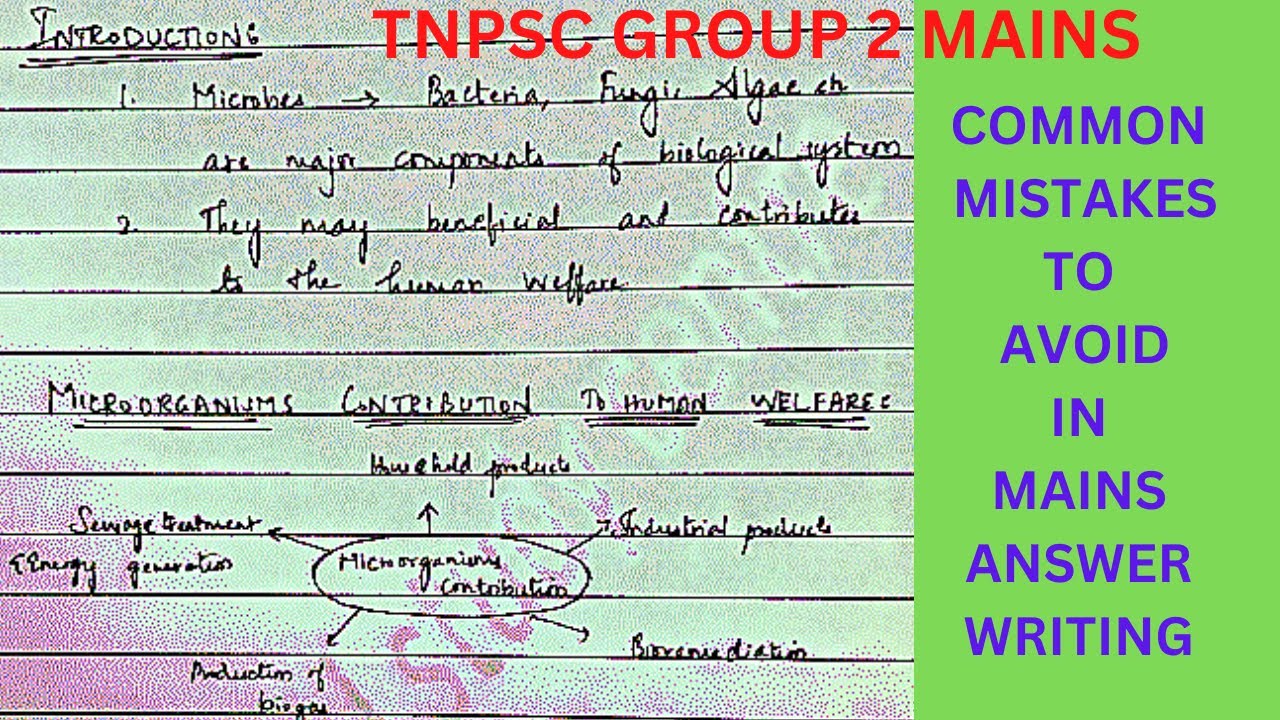 TNPSC GROUP 2 MAINS
INTRODUCTION:
1. Microbes → Bacteria, Fungi, Algae etc
are major components of biological system
2. They may beneficial and contributes
to the human welfare
MICROORGANISMS CONTRIBUTION TO HUMAN WELFARE:
Household products
Sewage treatment
& Energy generation
Industrial products
Microorganisms
contribution
Production of
biogas
Bioremediation
COMMON
MISTAKES
TO
AVOID
IN
MAINS
ANSWER
WRITING